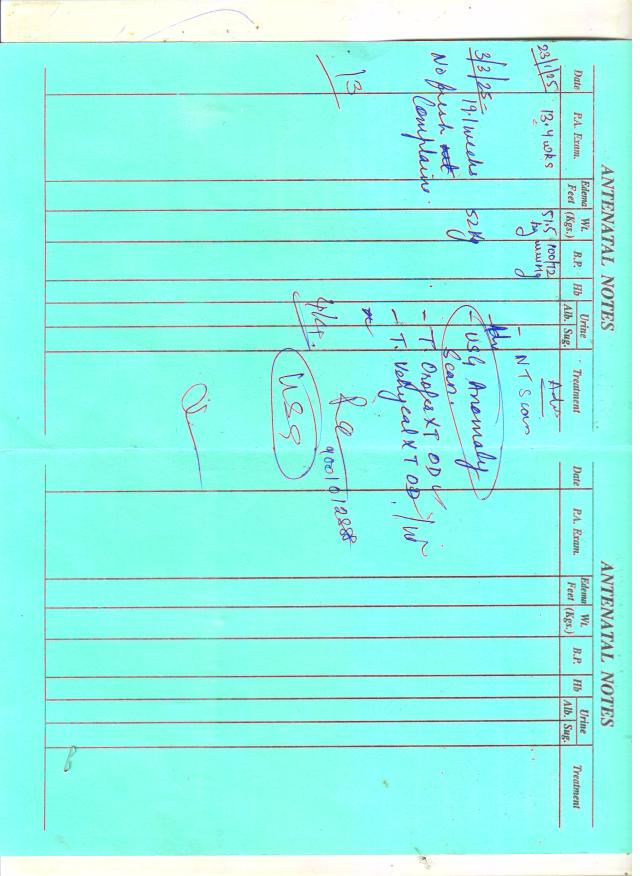 ANTENATAL NOTES
Date P.A. Exam. Edema Feet Wt. (Kgs.) B.P. Hb Urine Alb. Sug. Treatment
23/1/25 13.4 wks 51.5 kg 100/72 mmHg Adv
- NT Scan
3/3/25 = 19.1 weeks 52 kg Adv
- USG Anomaly Scan.
No fresh Complains.
- T. Orofer XT OD
- T. Verycal XT OD
13
4/4.
USG
ANTENATAL NOTES
Date P.A. Exam. Edema Feet Wt. (Kgs.) B.P. Hb Urine Alb. Sug. Treatment